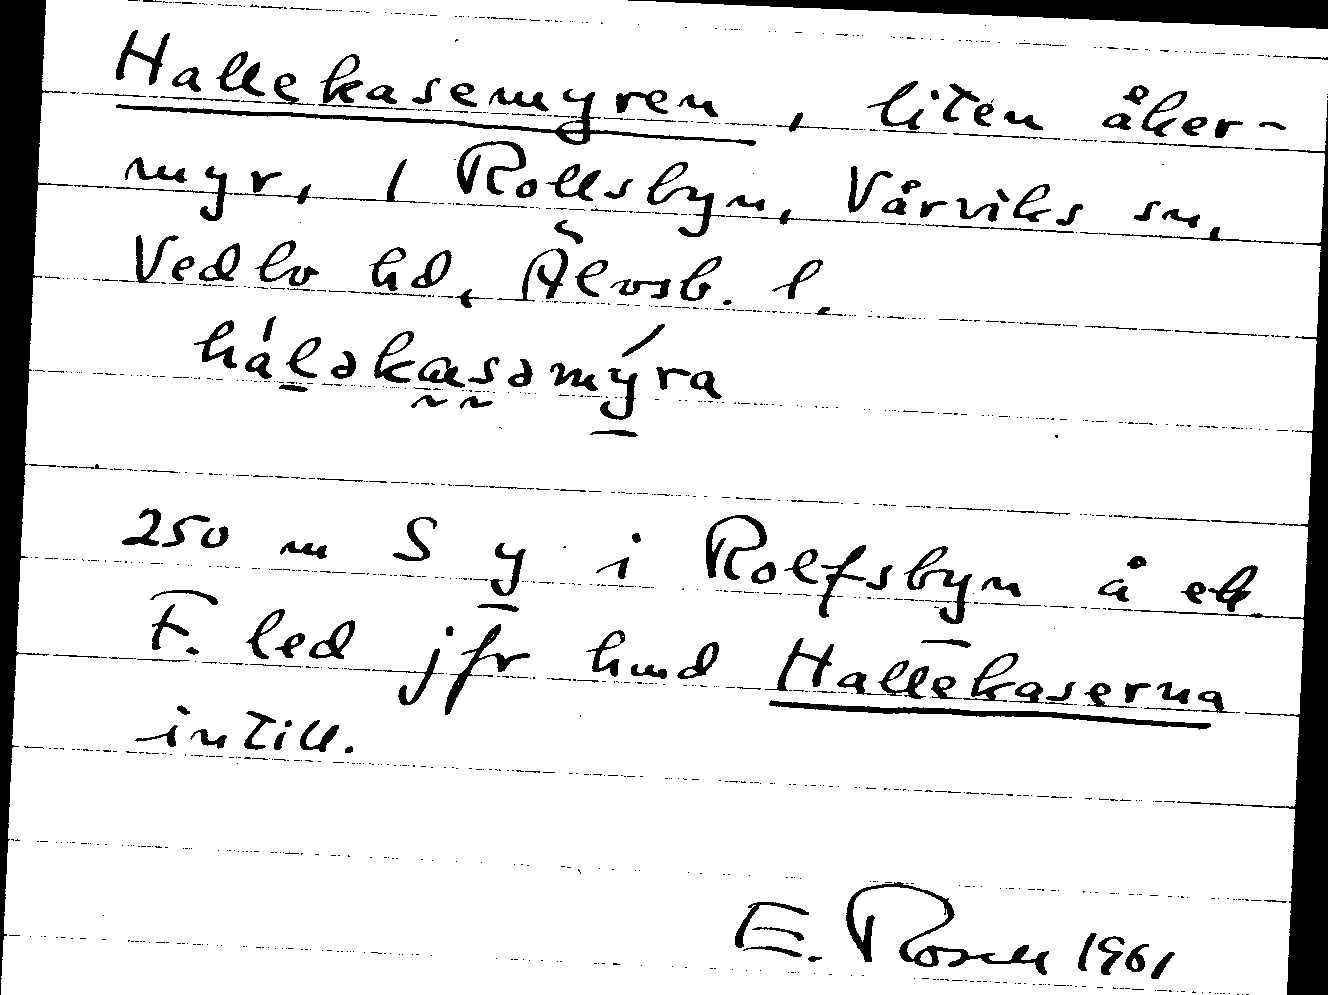 Hallekasemyren, liten åker-
myr, / Rollsbyn, Vårviks sn,
Vedbo hd, Älvsb. l.
háləkasəmýra
250 m S y i Rolfsbyn å ek.
F. led jfr hmd Hallekaserna
intill.
E. Rosell 1961